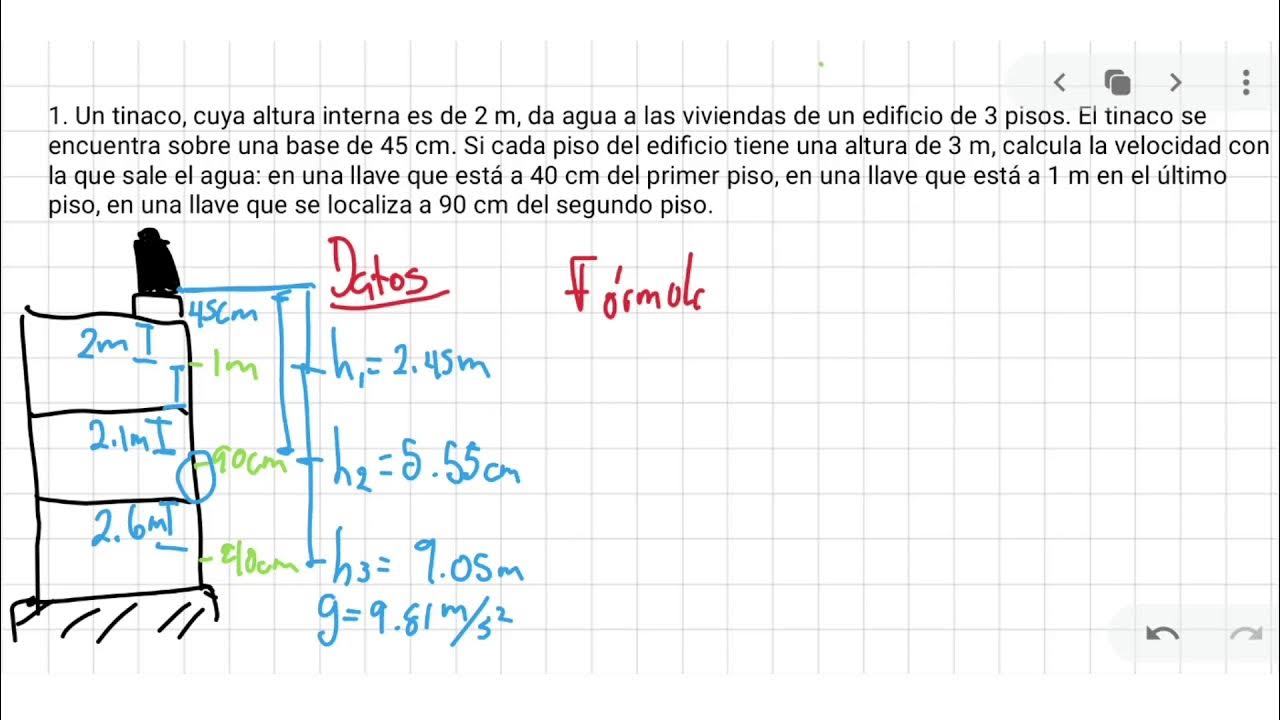 1. Un tinaco, cuya altura interna es de 2 m, da agua a las viviendas de un edificio de 3 pisos. El tinaco se
encuentra sobre una base de 45 cm. Si cada piso del edificio tiene una altura de 3 m, calcula la velocidad con
la que sale el agua: en una llave que está a 40 cm del primer piso, en una llave que está a 1 m en el último
piso, en una llave que se localiza a 90 cm del segundo piso.
Datos
Fórmula
45cm
2m
1m
h₁=2.45m
2.1m
90cm
h₂=5.55cm
2.6m
40cm
h₃=9.05m
g=9.81m/s²